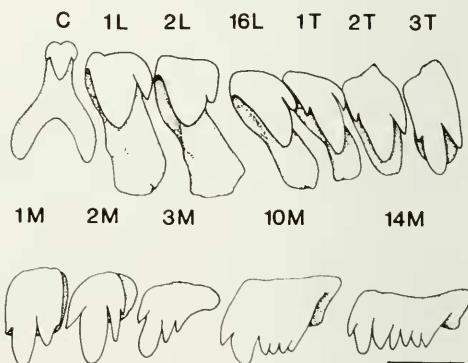 C 1L 2L 16L 1T 2T 3T
1M 2M 3M 10M 14M